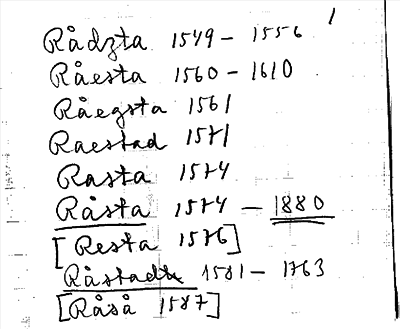 1
Rådzta 1549 – 1556
Råesta 1560 – 1610
Råegsta 1561
Raestad 1571
Rasta 1574
Råsta 1574 – 1880
[Resta 1576]
Råstadh 1581 – 1763
[Råså 1587]